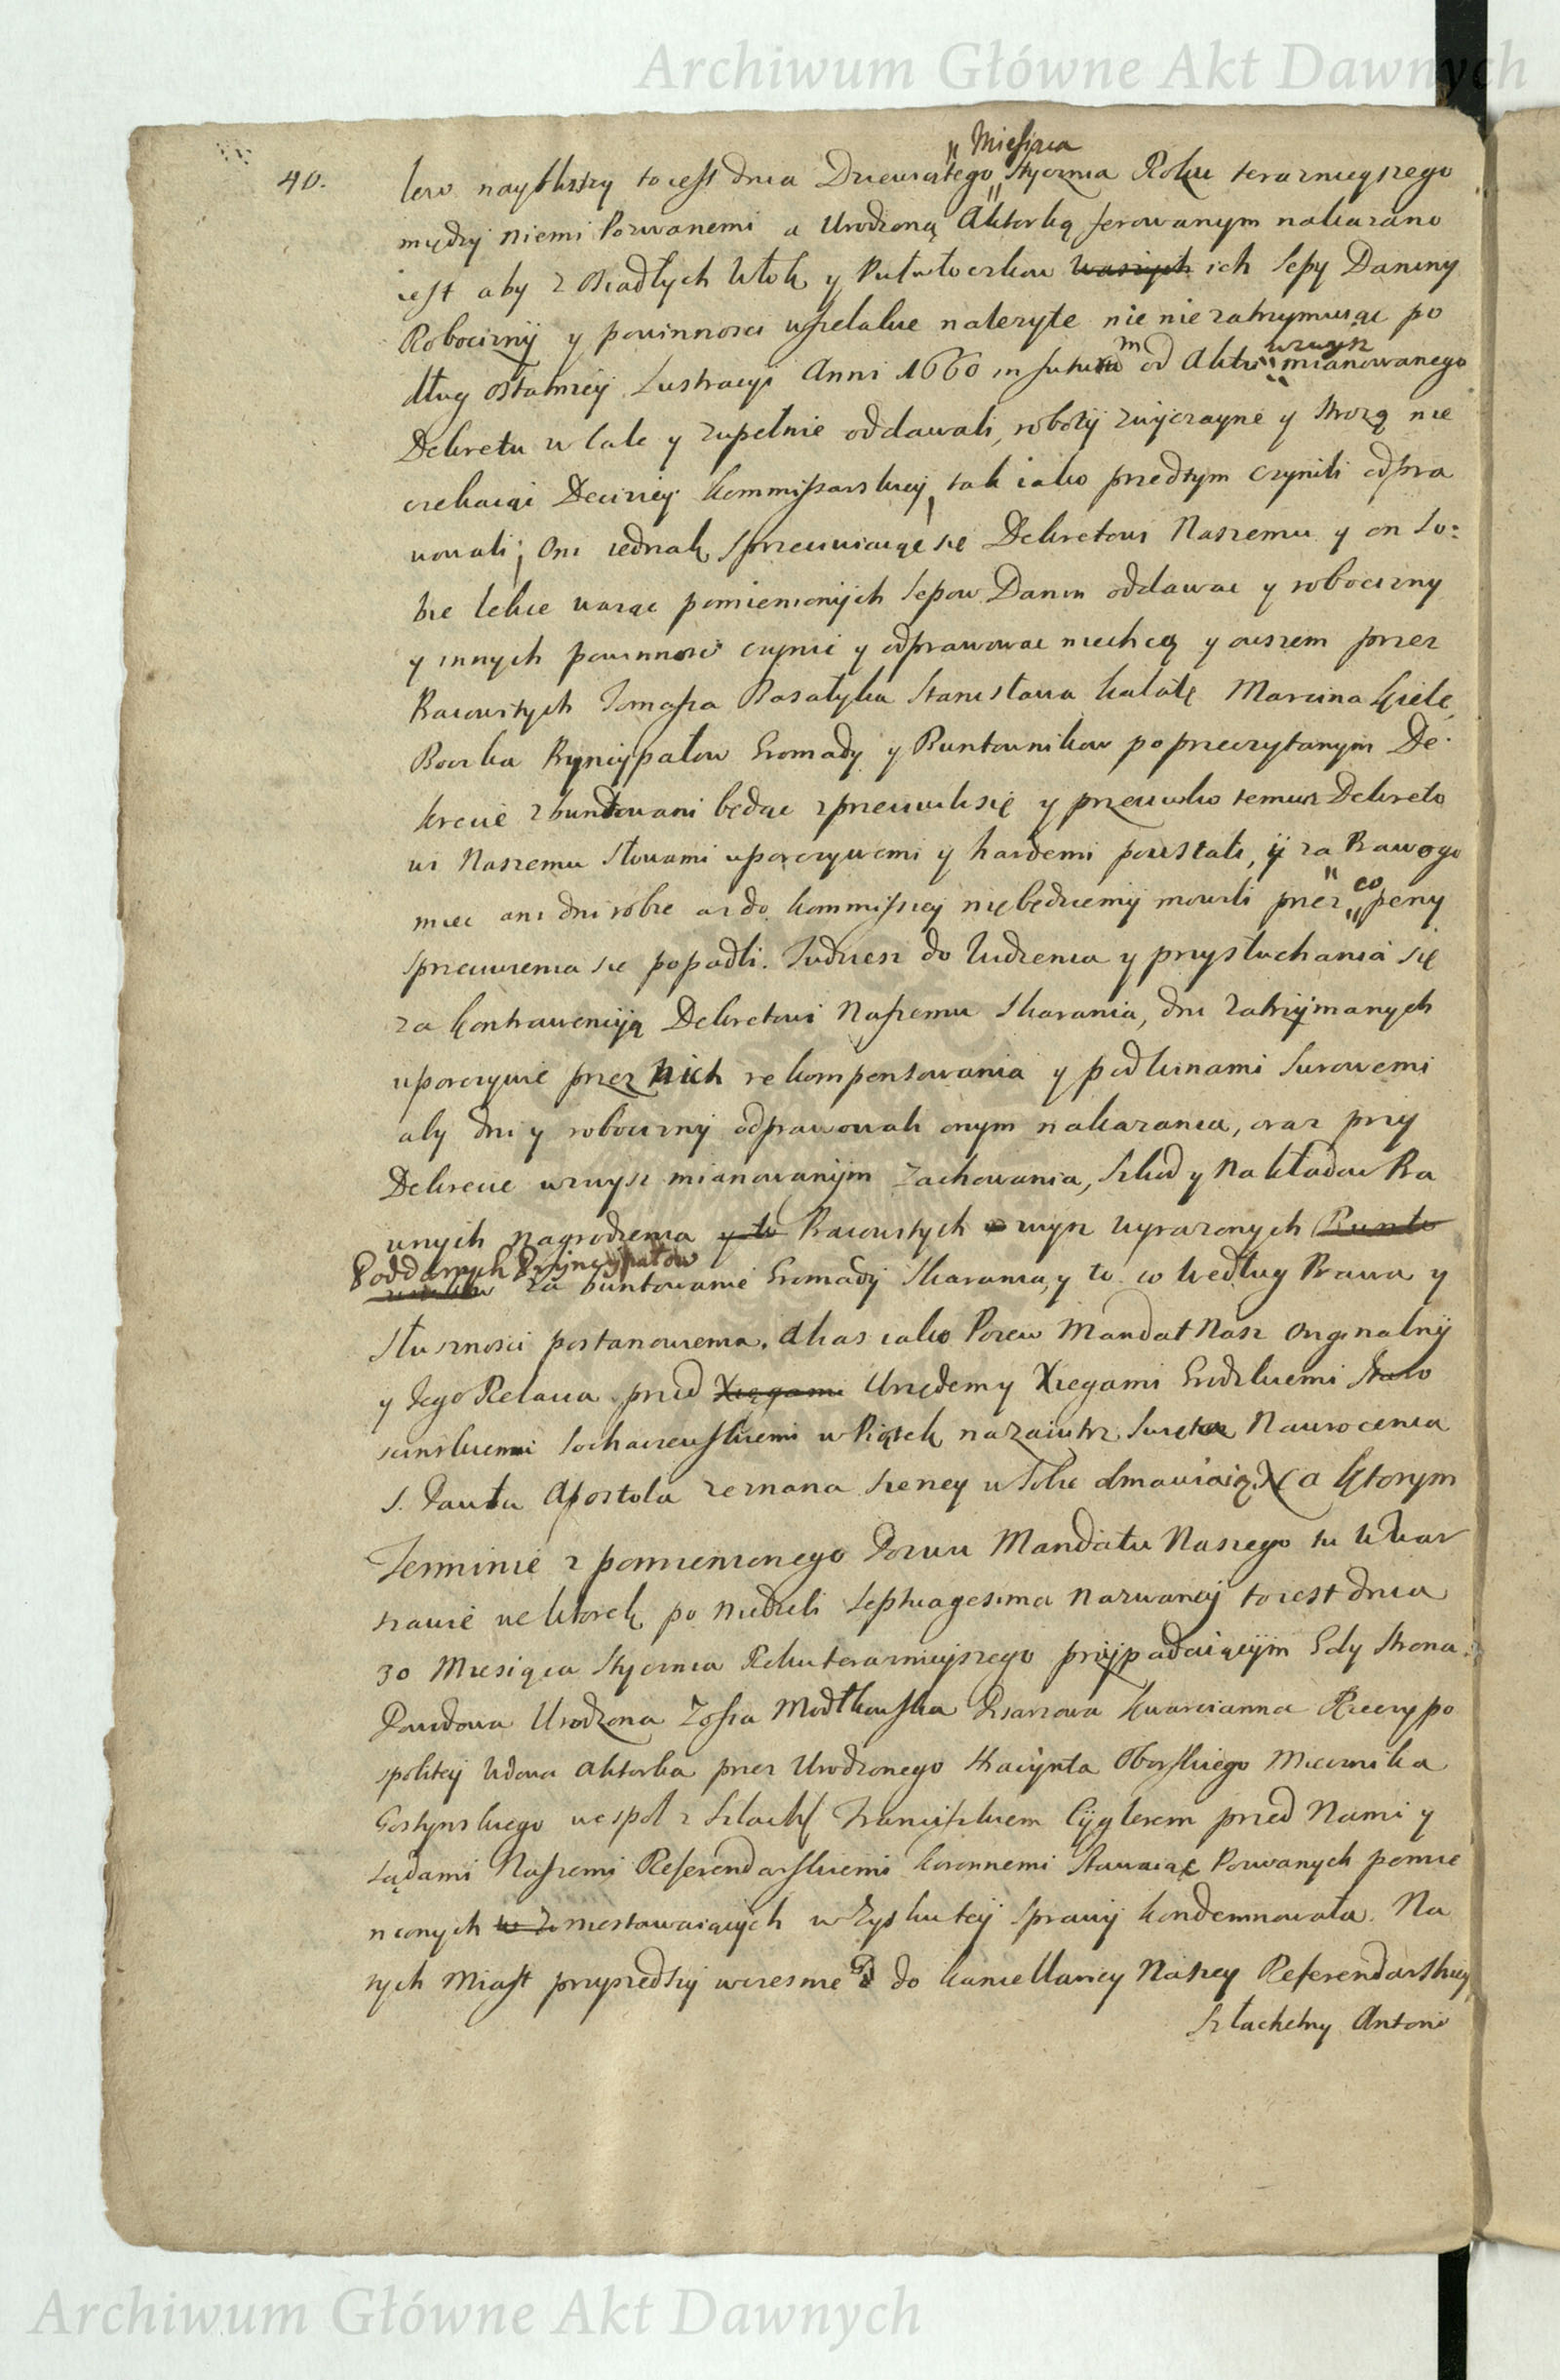 Archiwum Główne Akt Dawnych
40.
"Miesiąca
low nayblizszy to iest dnia Dziewiątego" Stycznia Roku teraznieyszego
między niemi Pozwanemi a Urodzoną Aktorką ferowanym nakazano
iest aby z osiadłych Włok y Pułwłoczkow waszych ich Sepy Daniny
Robocizny y powinnosci wszelakie należyte nie nie zatrzymuiąc po
m wzwysz
dług ostatniey Lustracyi Anni 1660 in futuru od Aktu mianowanego
Dekretu w cale y zupełnie oddawali, roboty zwyczayne y Strozą nie
czekaiąc Decizиey Kommissarskiey, tak iako przedtym czynili odpra
wowali; Oni iednak sprzeciwiaiąc się Dekretowi Naszemu y on So:
bie lekce waząc pomienionych Sepow Danin oddawac y robocizny
y innych powinnosci czynic y odprawowac niechcą y owszem przez
Racowitych Tomasza Basałyka Stanisława Kalatę Marcina Kiełę
Bocka Pryncypałow Gromady y Buntownikow po przeczytanym De-
krecie zbuntowani będąc zprzeciwili się y przeciwko temuz Dekreto
wi Naszemu Słowami uporczywemi y hardemi powstali, y za Prawego
co
miec ani dni robic az do Kommissyey nie będziemy mowili przez peny
sprzeciwienia się popadli. Tudziesz do Widzenia y przysłuchania się
za kontrawencyią Dekretowi Naszemu Skarania, dni zatrzymanych
uporczywie przez nich rekompensowania y pod winami Surowemi
aby dni y robocizny odprawowali onym nakazania, oraz przy
Dekrecie wzwysz mianowanym zachowania, Szkod y Nakładow Pra
wnych nagrodzenia y to Pracowitych wyz wyrazonych Bunto
Poddanych Pryncypałow
wnikow za buntowanie Gromady Skarania, y to co według Prawa y
Słusznosci postanowienia. A kas iako Pozew Mandat Nasz Originalny
y Jego Relacia przed Xięgami Urzędem y Xięgami Grodzkiemi Staro
scinskiemi Sochaczewskiemi w Piątek nazaiutrz Swięta Nawrocenia
S. Pawła Apostoła zeznana szerzey w Sobie obmawiaią. Na ktorym
Terminie z pomienionego Pozwu Mandatu Naszego tu w War
szawie we Wtorek po Niedzieli Septuagesima nazwaney to iest dnia
30 Miesiąca Stycznia Roku teraznieyszego przypadaiącym Gdy Strona
Powodowa Urodzona Zofia Modłkowska Pisarzowa Kwarcianna Rzeczypo
spolitey Wdowa Aktorka przez Urodzonego Hacynta Oborskiego Miecznika
Gostynskiego wespoł z Szlach Franciszkiem Cyglerem przed Nami y
Sądami Naszemi Referendarskiemi Koronnemi Stawaiąc Pozwanych pomie
nionych niestawaiących w Zysku tey Sprawy kondemnowała. Na
tych Miast przyszedszy wczesnie do Kancellaryey Naszey Referendarskiey
Szlachetny Antoni
Archiwum Główne Akt Dawnych